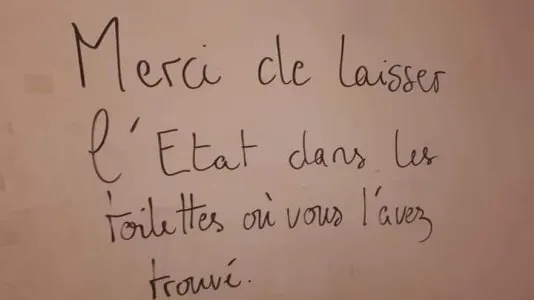 Merci de laisser
l'Etat dans les
toilettes où vous l'avez
trouvé.